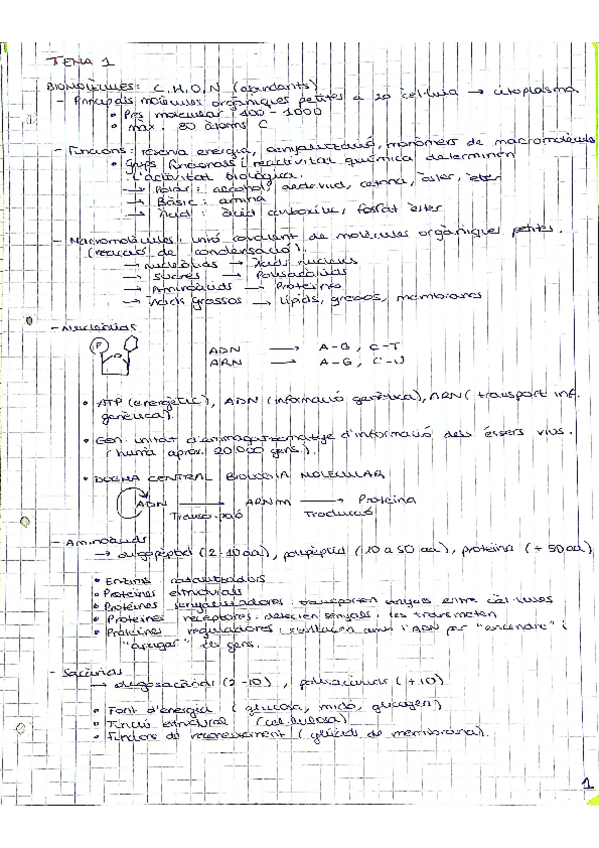 TEMA 1
BIOMOLÈCULES: C, H, O, N (abundants)
- Principals molècules orgàniques petites a la cel·lula → citoplasma
• Pes molecular: 100 - 1000
• màx. 30 àtoms C
- Funcions: reserva energia, senyalització, monòmers de macromolècules
• Grups funcionals i reactivitat química determinen
l'activitat biològica.
→ Polar: alcohol, aldehid, cetona, èster, èter
→ Bàsic: amina
→ Àcid: àcid carboxílic, fosfat èster
- Macromolècules: unió covalent de molècules orgàniques petites.
(reacció de condensació).
→ Nucleòtids → Àcids nucleics
→ Sucres → Polisacàrids
→ Aminoàcids → Proteïnes
→ Àcids grassos → Lípids, greixos, membranes
- Nucleòtids
P
ADN → A-G, C-T
ARN → A-G, C-U
• ATP (energètic), ADN (informació genètica), ARN (transport inf.
genètica).
• Gen: unitat d'emmagatzematge d'informació dels éssers vius.
(humà aprox. 20.000 gens).
• DOGMA CENTRAL BIOLOGIA MOLECULAR
ADN → ARNm → Proteïna
Transcripció Traducció
- Aminoàcids
→ oligopèptid (2-10 aa), polipèptid (10 a 50 aa), proteïna (+50 aa)
• Enzims catalitzadors
• Proteïnes estructurals
• Proteïnes senyalitzadores: transporten senyals entre cèl·lules
• Proteïnes receptores: detecten senyals i les transmeten
• Proteïnes reguladores: amb l'ADN per "encendre" i
"apagar" els gens.
- Sacàrids
→ oligosacàrids (2-10), polisacàrids (+10)
• Font d'energia (glucosa, midó, glucogen)
• Funció estructural (cel·lulosa)
• Funcions de reconeixement (glúcids de membrana).
1